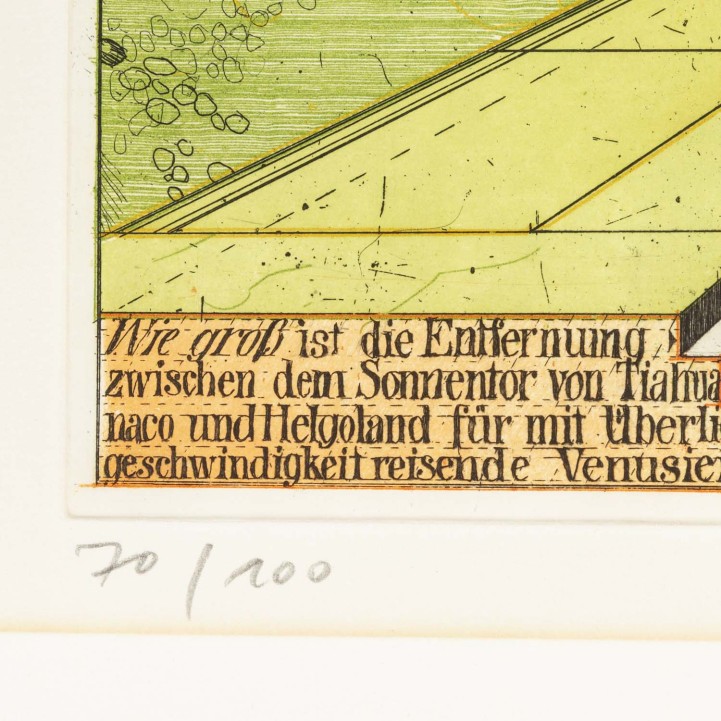 Wie groß ist die Entfernung
zwischen dem Sonnentor von Tiahua
naco und Helgoland für mit Überli
geschwindigkeit reisende Venusier
70/100